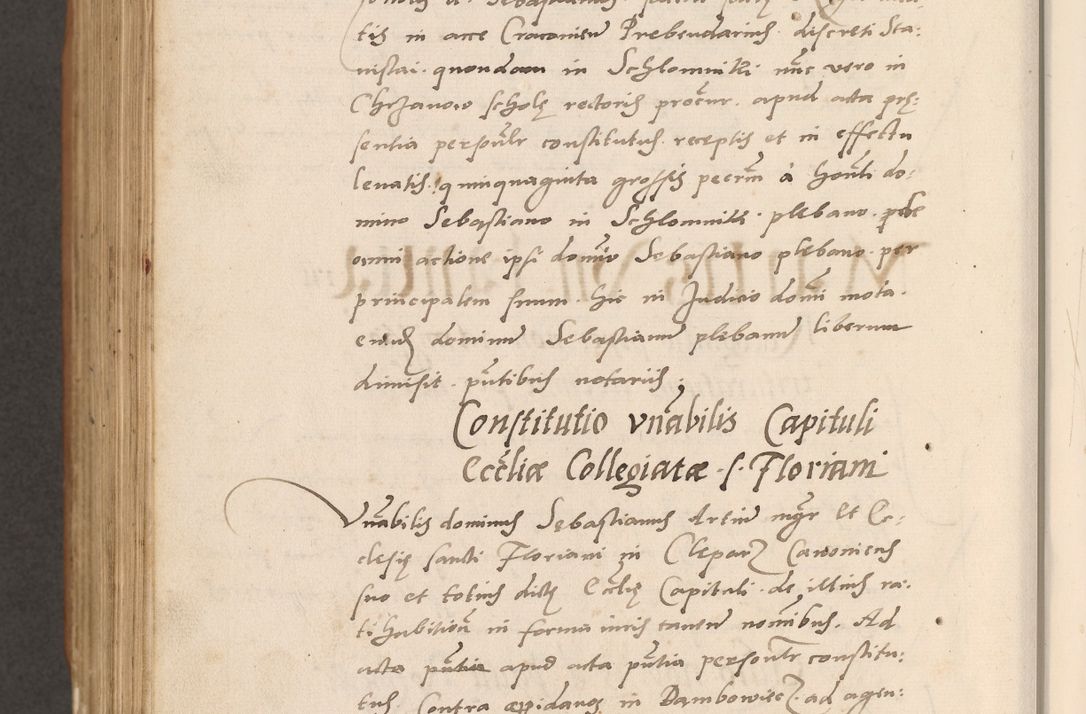 tis in arce Cracovien̄ Prebendarius discreti Sta:
nislai quondam in Schlomniki nūc vero in
Chrzanow scholę rectoris procūr. apud acta prę:
sentia personłr constitutus receptis et in effectu
levatis quinquaginta grossis pecun̄ à honłi do:
mino Sebastiano in Schlomniki plebano
omni actione ipsi domīo Sebastiano plebano per
principalem suum hic in Judicio domī mota
dominū Sebastianū plebanū liberum
dimisit. pn̄tibus notariis.
Constitutio vn̄abilis Capituli
Eccl̄iæ Collegiatæ S. Floriani
Vn̄abilis dominus Sębastianus Artiū mgr̄ Et Ec:
clesię sancti Floriani in Clepar Canonicus
suo et totius dictę Eccl̄ię Capituli de illius ra:
ti habitiōe in forma iuris tamen nomībus. Ad
acta pn̄tia apud acta pn̄tia personłr constitu:
tus Contra oppidanos in Dambowiec ad agen: